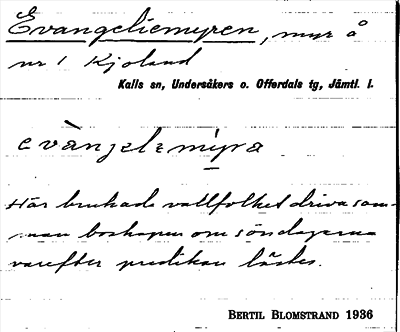 Evangeliemyren, myr å
nr 1 Kjoland
Kalls sn, Undersåkers o. Offerdals tg, Jämtl. l.
evàŋjelɛmyra
Här brukade vallfolket driva sam-
man boskapen om söndagarna
varefter predikan lästes.
BERTIL BLOMSTRAND 1936